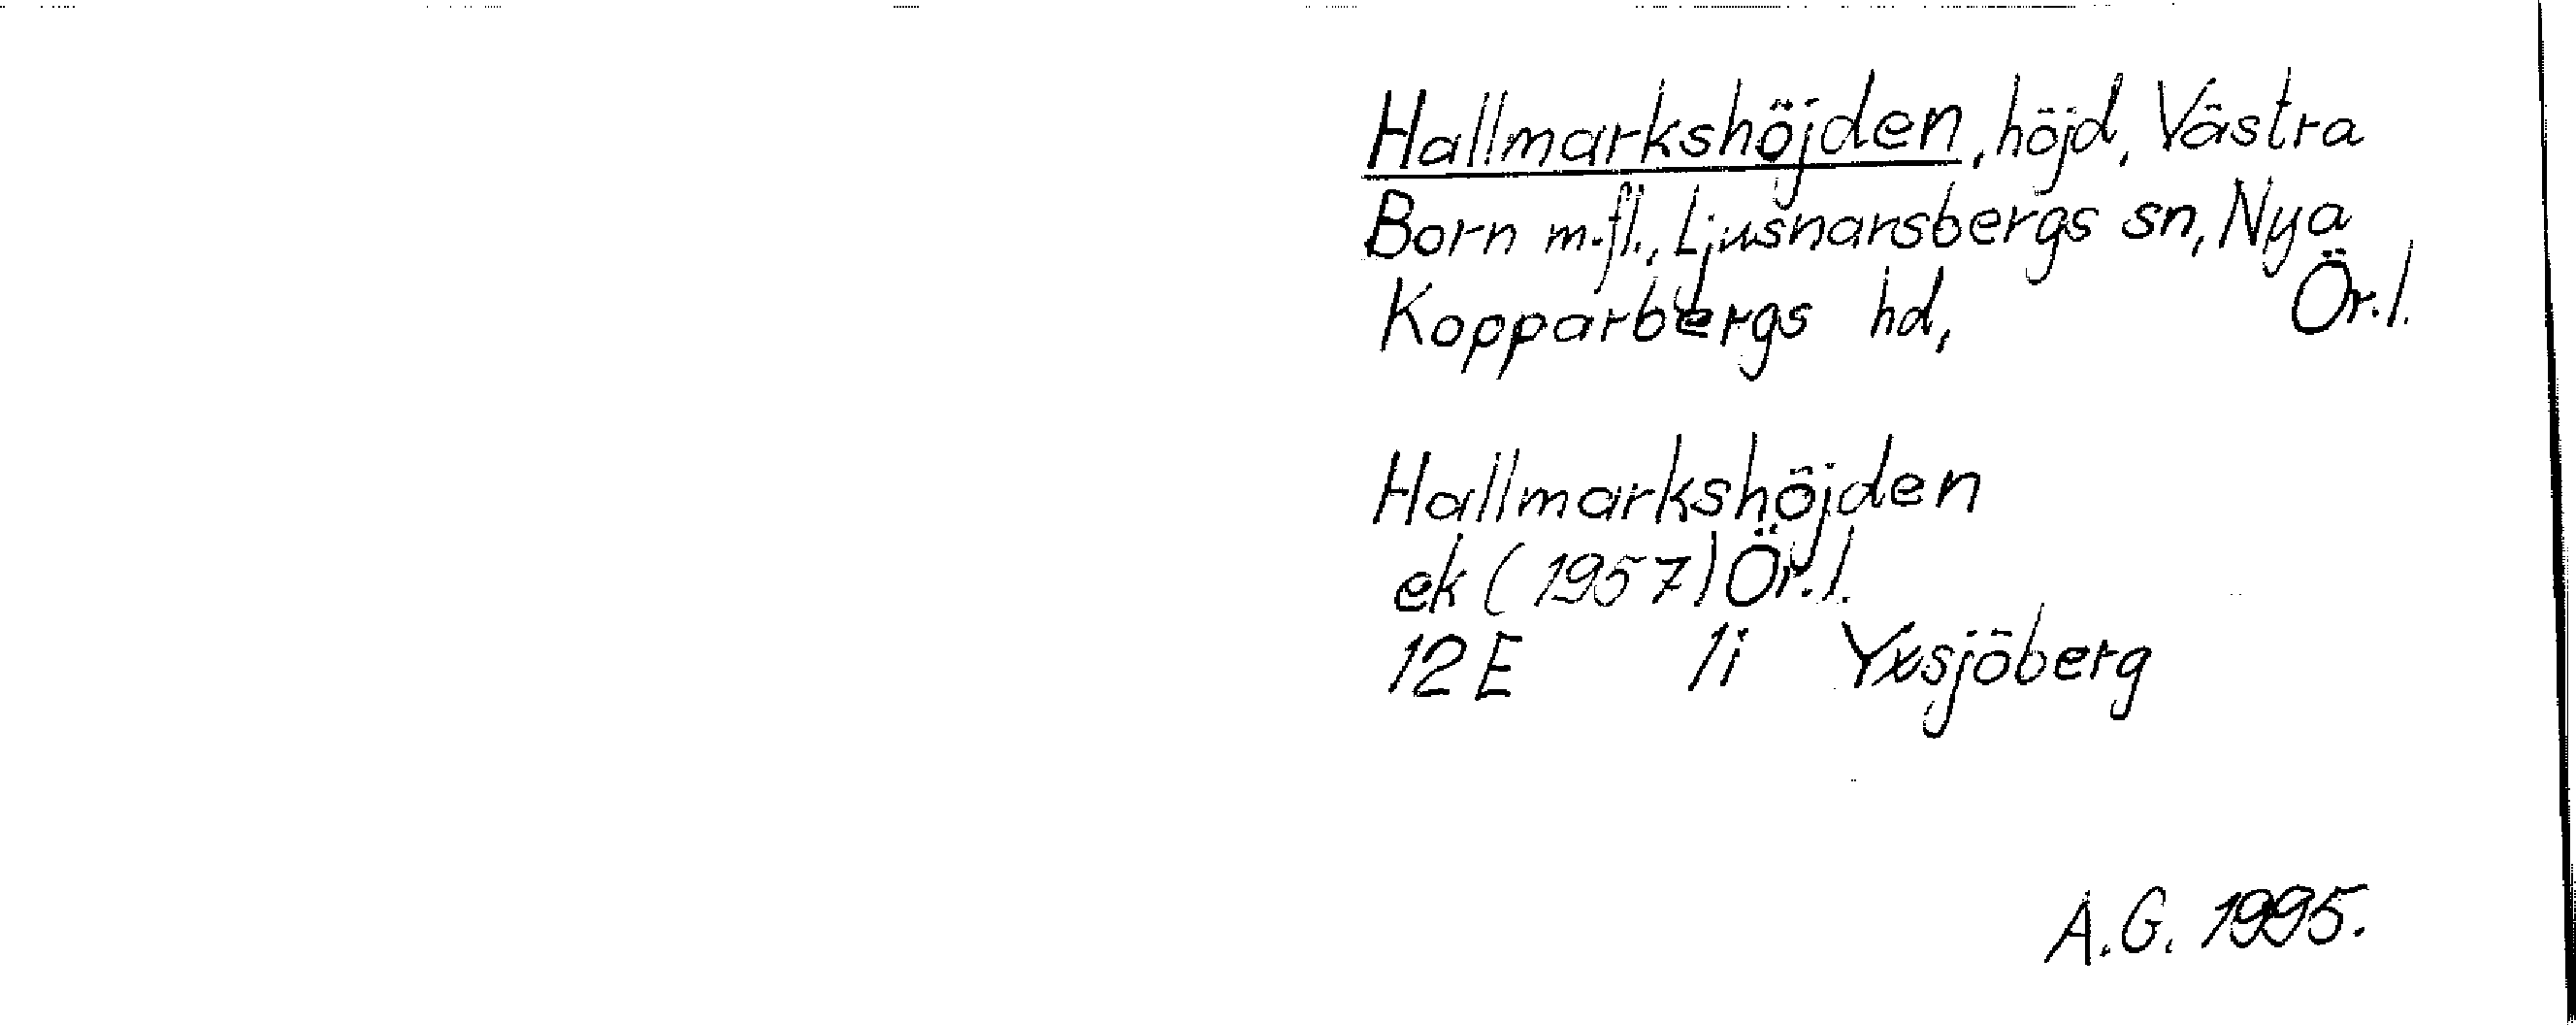 Hallmarkshöjden, höjd, Västra
Born m.fl., Ljusnarsbergs sn, Nya
Kopparbergs hd, Ör.l.
Hallmarkshöjden
ek (1957) Ör.l.
12E 1i Yxsjöberg
A.G. 1995.